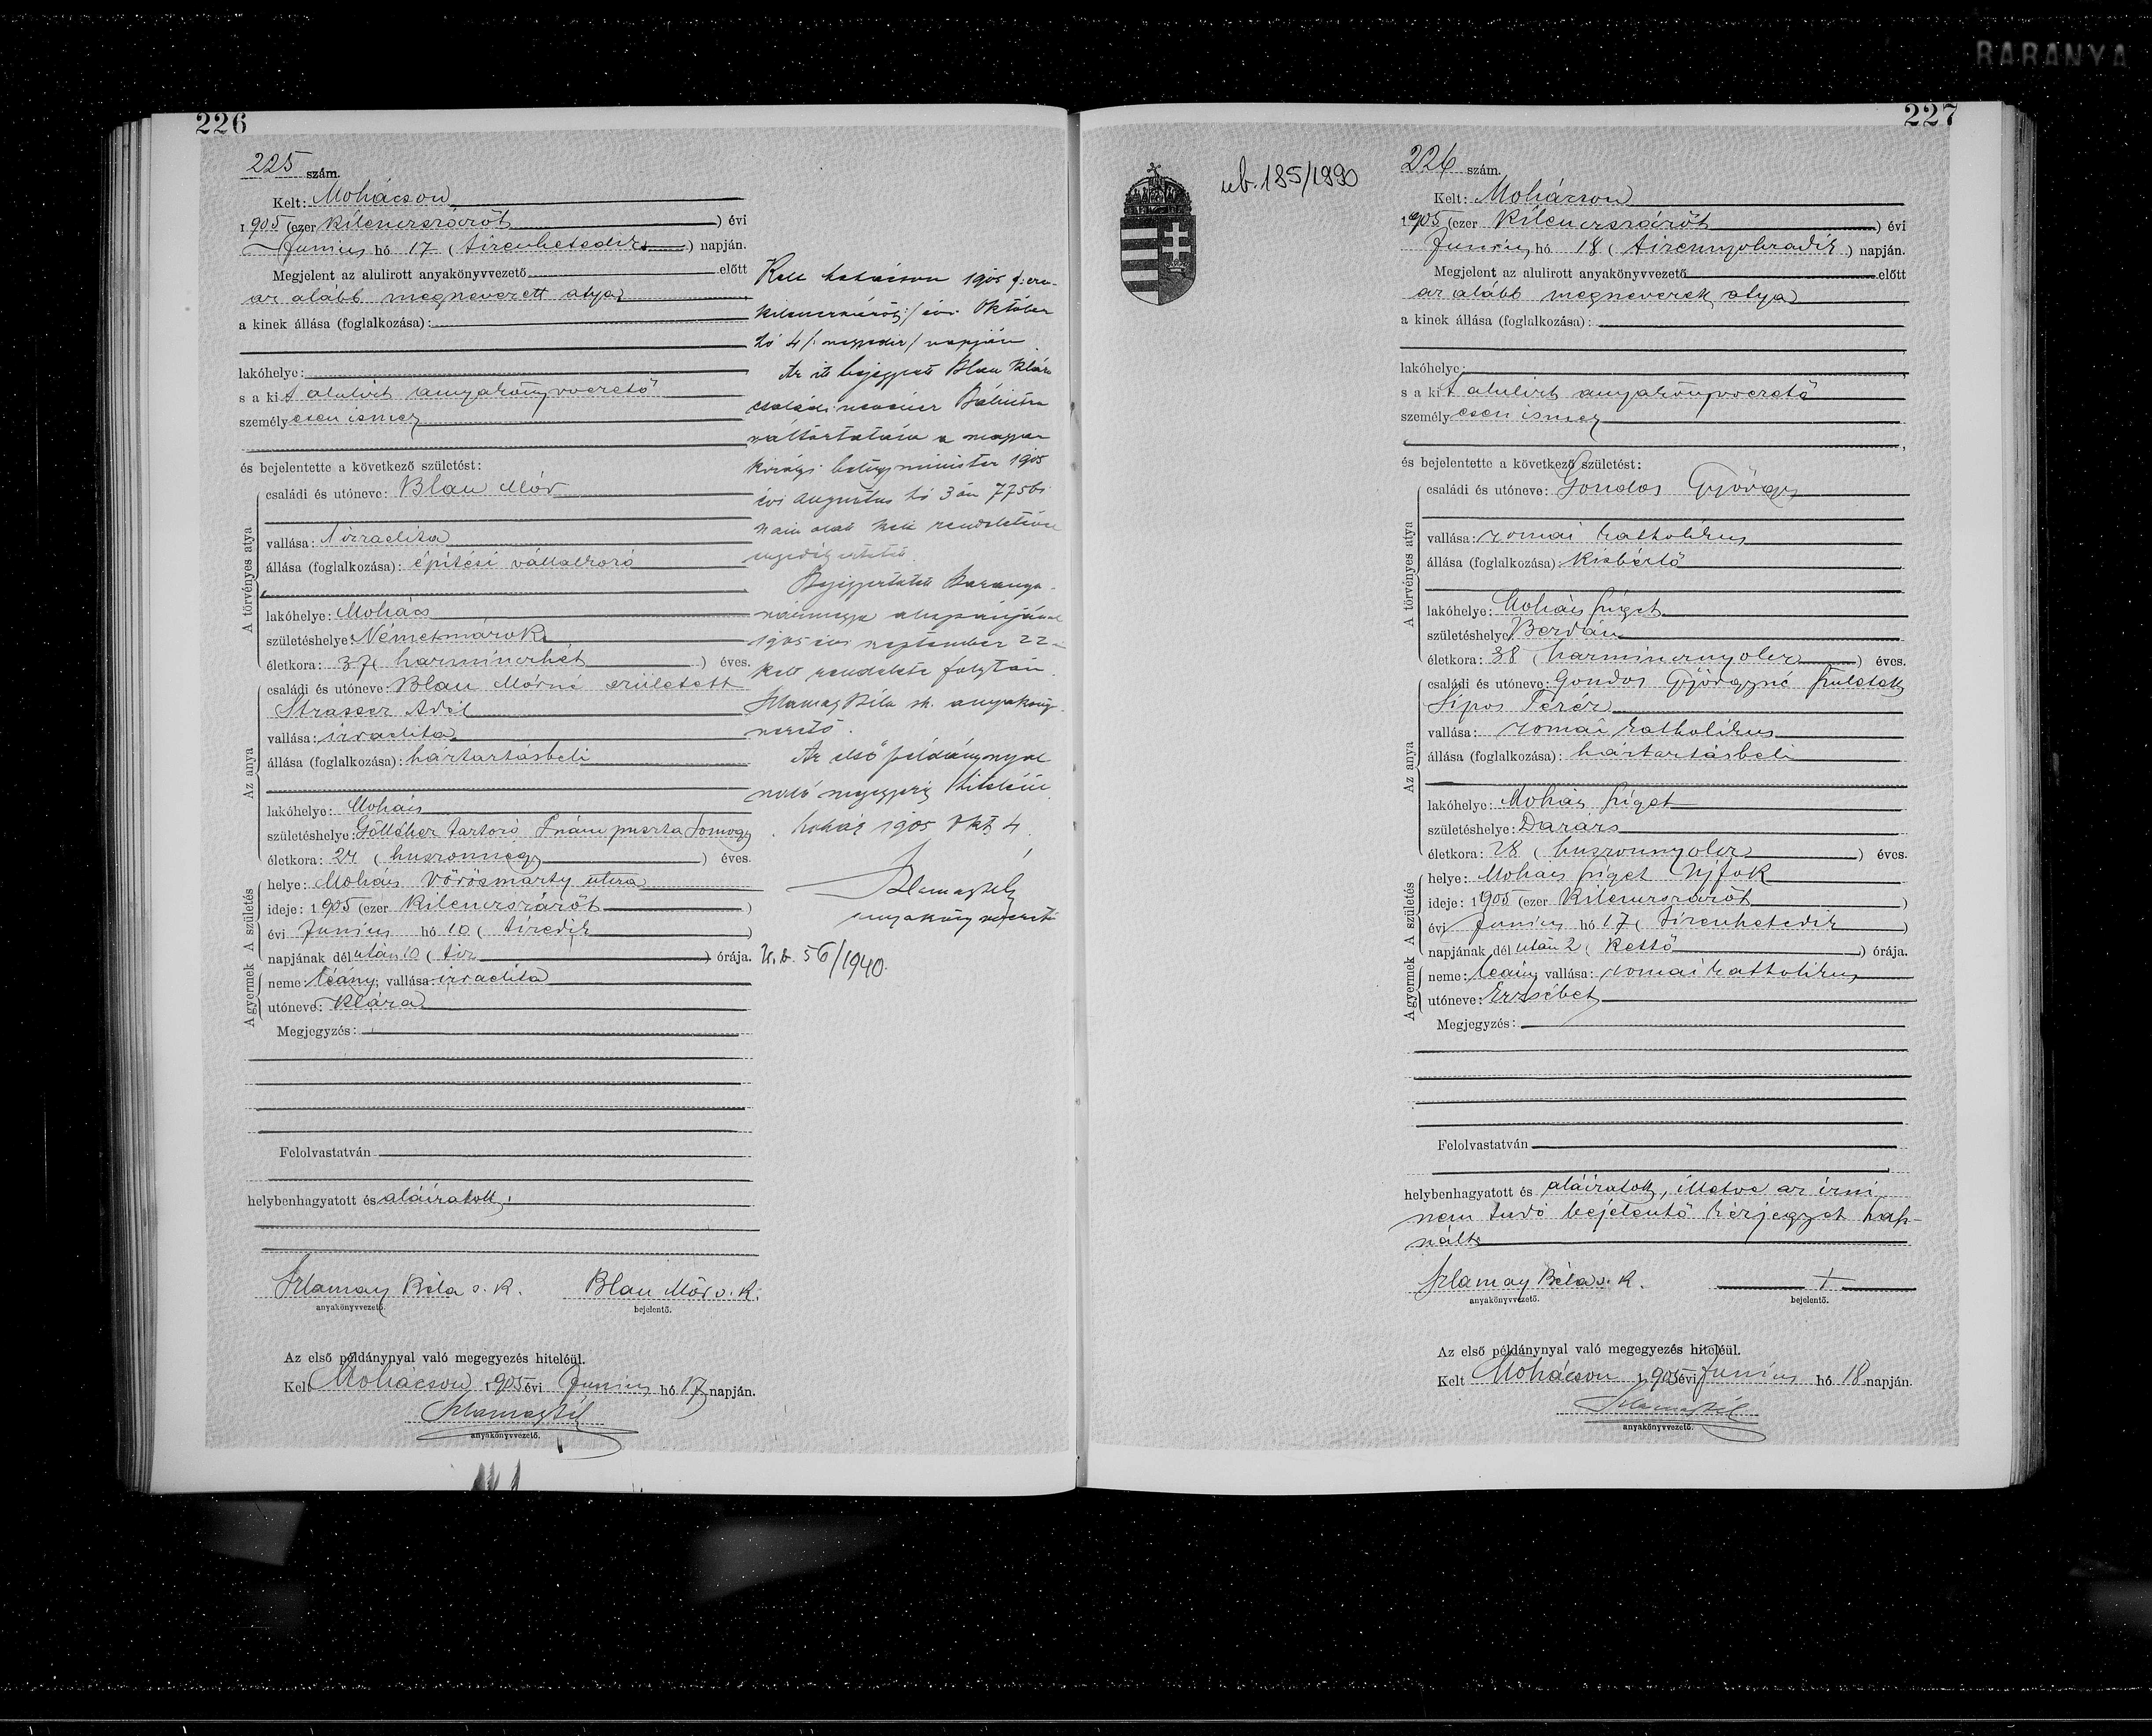 BARANYA
226
225 szám.
Kelt: Mohácson
1905 (ezer kilenczszázöt) évi
Junius hó 17 (tizenhetedik) napján.
Megjelent az alulirott anyakönyvvezető előtt
az alább megnevezett atya,
a kinek állása (foglalkozása):
lakóhelye:
s a kit alulirt anyakönyvvezető
személyesen ismer,
és bejelentette a következő születést:
A törvényes atya
családi és utóneve: Blau Mór
vallása: izraelita
állása (foglalkozása): építési vállalkozó
lakóhelye: Mohács
születéshelye: Németmárok
életkora: 37 (harminczhét) éves.
Az anya
családi és utóneve: Blau Mórné született
Strasser Adél
vallása: izraelita
állása (foglalkozása): háztartásbeli
lakóhelye: Mohács
születéshelye: tartozó puszta Somogy
életkora: 24 (huszonnégy) éves.
A gyermek A születés
helye: Mohács Vörösmarty utcza
ideje: 1905 (ezer kilenczszázöt)
évi Junius hó 10 (tizedik)
napjának dél után 10 (tiz) órája.
neme: leány; vallása: izraelita
utóneve: Klára
Megjegyzés:
Felolvastatván
helybenhagyatott és aláiratott.
Szlamay Béla s. k. Blau Mór s. k.
anyakönyvvezető. bejelentő.
Az első példánynyal való megegyezés hiteléül.
Kelt Mohácson, 1905 évi Junius hó 17 napján.
Szlamay Béla
anyakönyvvezető.
Kelt Mohácson 1905 /:ezer-
kilenczszázöt:/ évi Október
hó 4 /:negyedik/ napján.
Az itt bejegyzett Blau Klára
családi nevének Bálintra
változtatása a magyar
királyi belügyminister 1905
évi augusztus hó 3 án
szám alatt kelt rendeletével
engedélyeztetett.
Bejegyeztetett Baranya-
vármegye alispánjának
1905 évi september 22-
kelt rendelete folytán.
Szlamay Béla sk. anyakönyv-
vezető.
Az első példánynyal
való megegyezés hiteléül.
Mohács 1905 Okt 4.
Szlamay Béla
anyakönyvvezető
U. b. 56/1940.
227
ub. 185/1990
226 szám.
Kelt: Mohácson
1905 (ezer kilenczszázöt) évi
Junius hó 18 (tizennyolczadik) napján.
Megjelent az alulirott anyakönyvvezető előtt
az alább megnevezett atya
a kinek állása (foglalkozása):
lakóhelye:
s a kit alulirt anyakönyvvezető
személyesen ismer,
és bejelentette a következő születést:
A törvényes atya
családi és utóneve: Gondos György
vallása: romai katholikus
állása (foglalkozása): kisbérlő
lakóhelye: Mohács sziget
születéshelye:
életkora: 38 (harmincznyolcz) éves.
Az anya
családi és utóneve: Gondos Györgyné született
Sipos Teréz
vallása: romai katholikus
állása (foglalkozása): háztartásbeli
lakóhelye: Mohács sziget
születéshelye: Darázs
életkora: 28 (huszonnyolcz) éves.
A gyermek A születés
helye: Mohács sziget Ujfok
ideje: 1905 (ezer kilenczszázöt)
évi Junius hó 17 (tizenhetedik)
napjának dél után 2 (kettő) órája.
neme: leány; vallása: romai katholikus
utóneve: Erzsébet
Megjegyzés:
Felolvastatván
helybenhagyatott és aláiratott, illetve az irni
nem tudó bejelentő kézjegyet hasz-
nált
Szlamay Béla s. k. +
anyakönyvvezető. bejelentő.
Az első példánynyal való megegyezés hiteléül.
Kelt Mohácson 1905 évi Junius hó 18 napján.
Szlamay Béla
anyakönyvvezető.